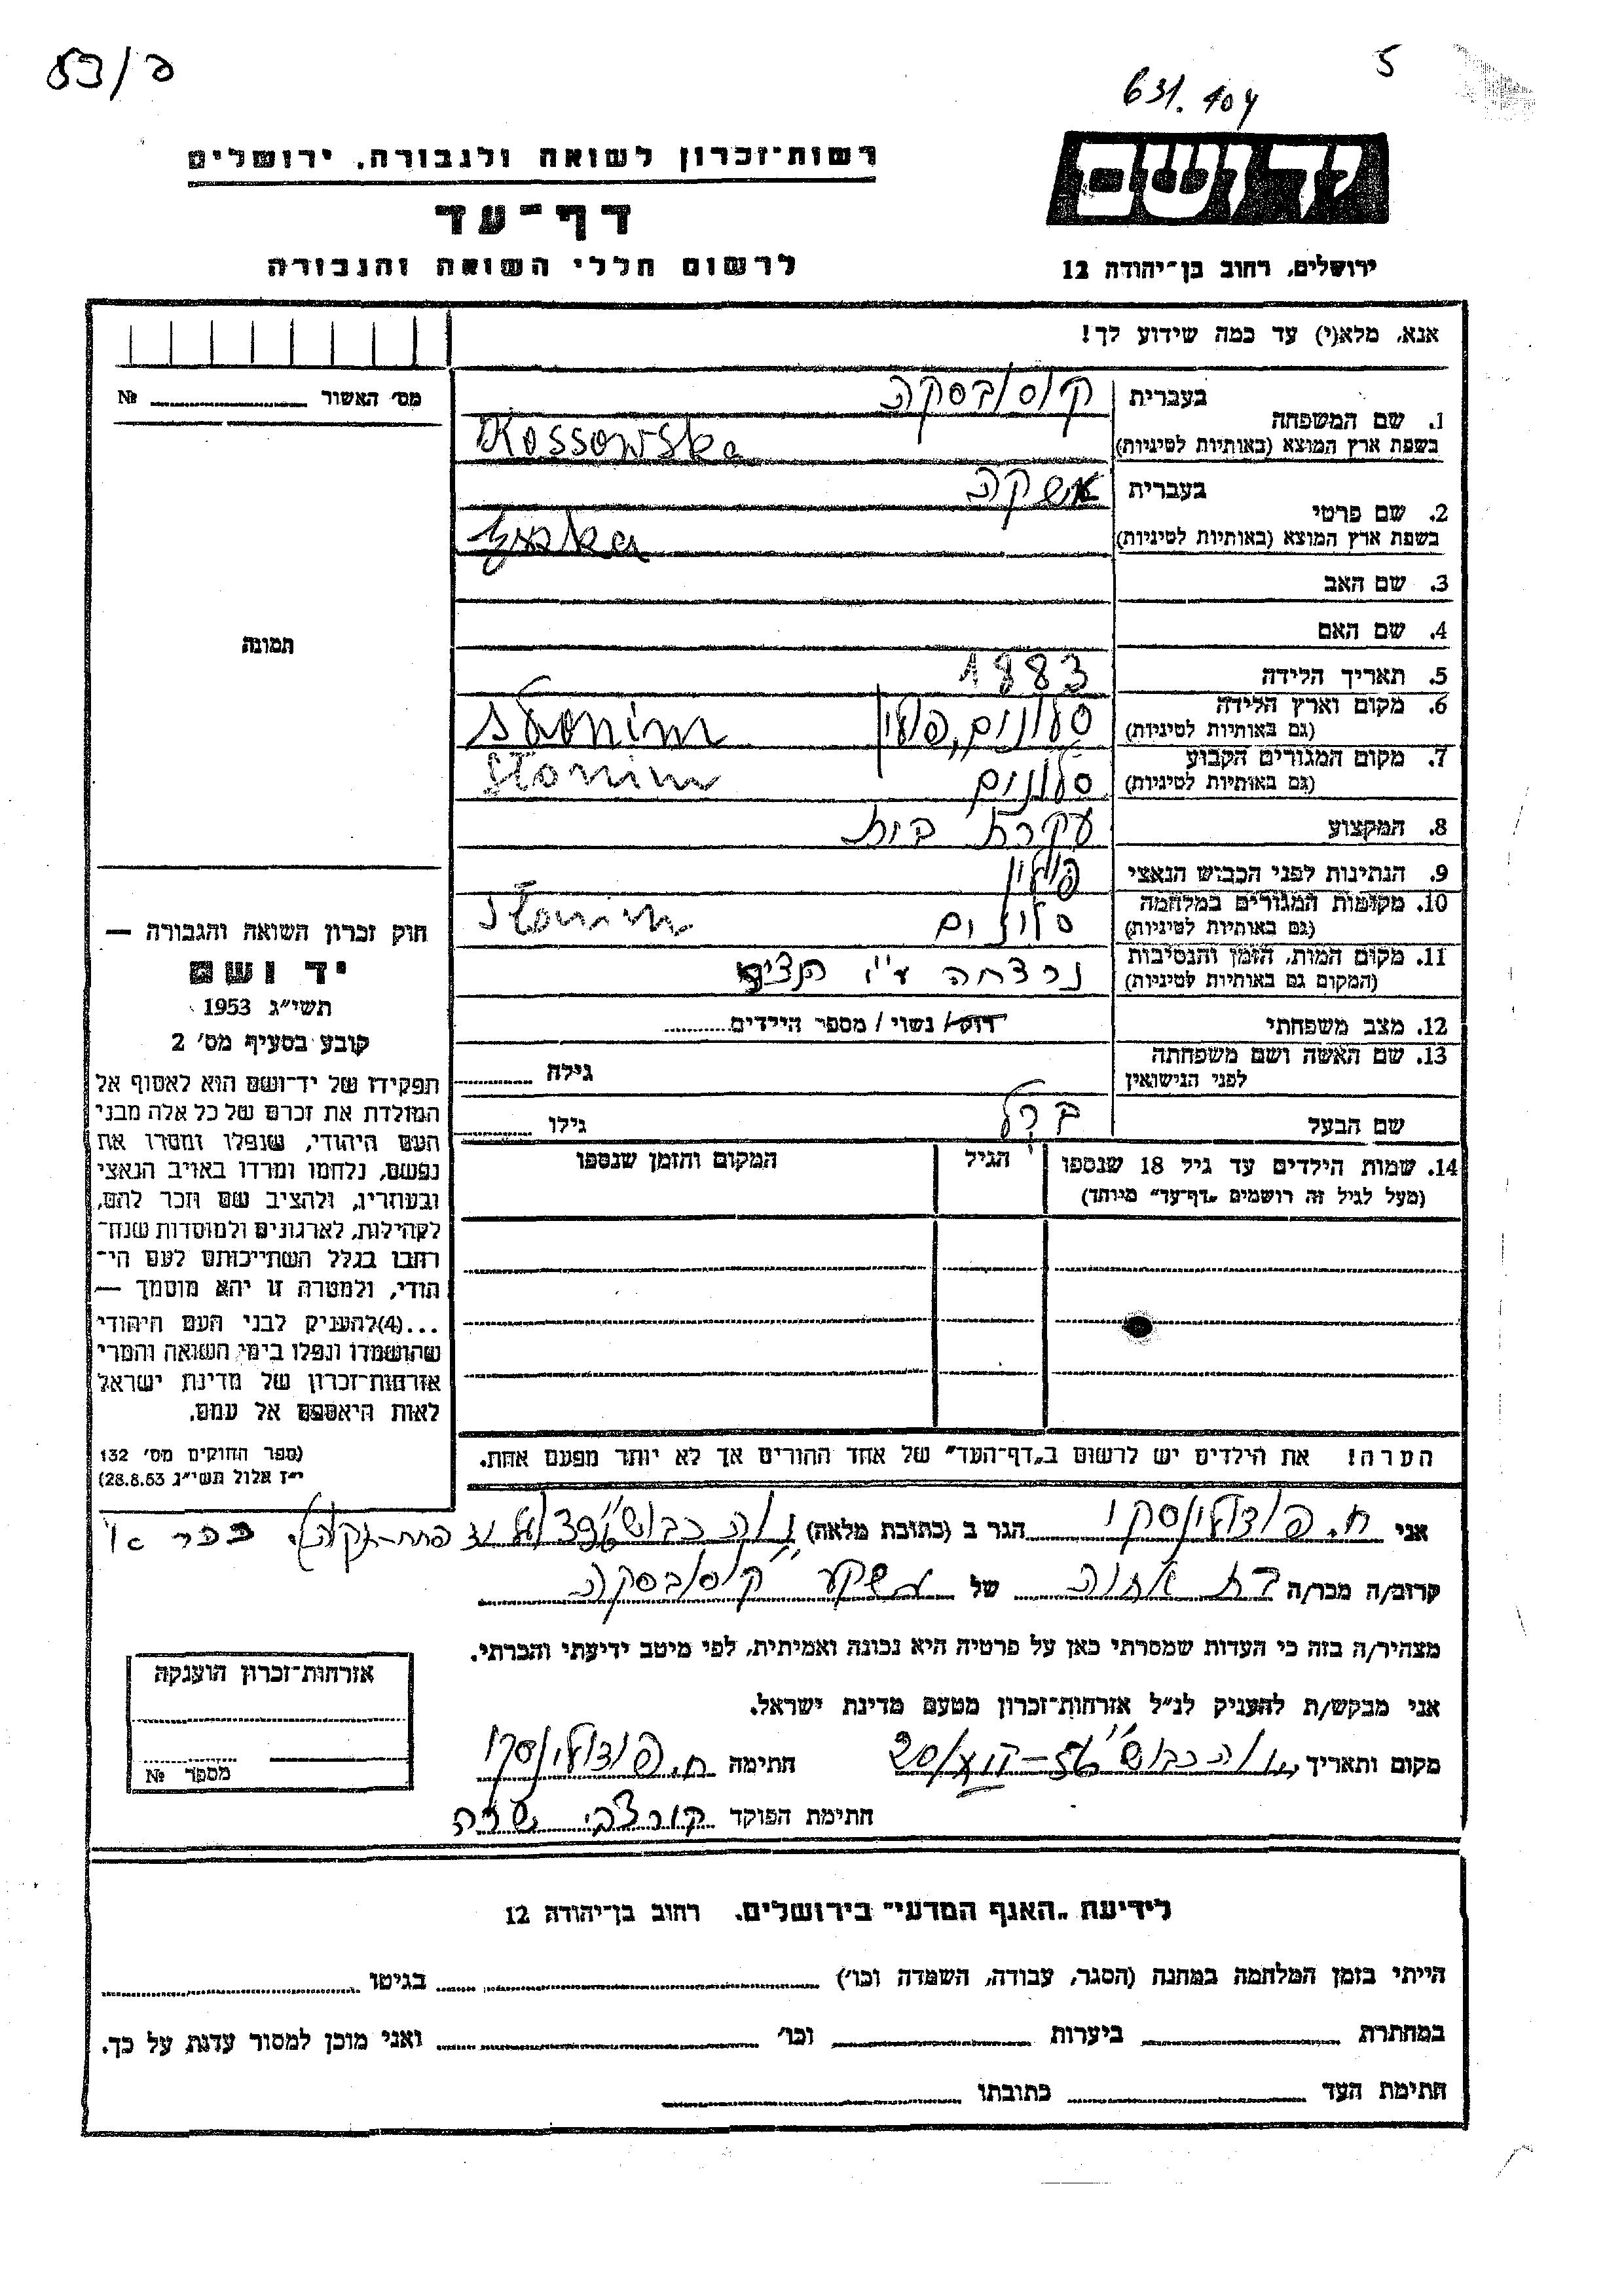 53/ק
631.104
5
ידושם
רשות־זכרון לשואה ולגבורה, ירושלים
דף־עד
לרשום חללי השואה והגבורה
ירושלים, רחוב בן־יהודה 12
אנא, מלא(י) עד כמה שידוע לך!
מס׳ האשור № 
1. שם המשפחה בעברית קוסובסקה
בשפת ארץ המוצא (באותיות לטיניות) Kossowska
2. שם פרטי בעברית אשקה
בשפת ארץ המוצא (באותיות לטיניות)
3. שם האב
4. שם האם
5. תאריך הלידה 1883
6. מקום וארץ הלידה סלונים, פולין Słonim
(גם באותיות לטיניות)
7. מקום המגורים הקבוע סלונים Słonim
(גם באותיות לטיניות)
8. המקצוע עקרת בית
9. הנתינות לפני הכבוש הנאצי פולין
10. מקומות המגורים במלחמה סלונים Słonim
(גם באותיות לטיניות)
11. מקום המות, הזמן והנסיבות נרצחה ע״י הנצים
(המקום גם באותיות לטיניות)
12. מצב משפחתי רווק/ נשוי / מספר הילדים
13. שם האשה ושם משפחתה גילה
לפני הנישואין
שם הבעל ברל גילו
14. שמות הילדים עד גיל 18 שנספו הגיל המקום והזמן שנספו
(מעל לגיל זה רושמים „דף־עד״ מיוחד)
הערה! את הילדים יש לרשום ב„דף־העד״ של אחד ההורים אך לא יותר מפעם אחת.
תמונה
חוק זכרון השואה והגבורה —
יד ושם
תשי״ג 1953
קובע בסעיף מס׳ 2
תפקידו של יד־ושם הוא לאסוף אל
המולדת את זכרם של כל אלה מבני
העם היהודי, שנפלו ומסרו את
נפשם, נלחמו ומרדו באויב הנאצי
ובעוזריו, ולהציב שם וזכר להם,
לקהילות, לארגונים ולמוסדות שנח־
רבו בגלל השתייכותם לעם הי־
הודי, ולמטרה זו יהא מוסמך —
...(4)להעניק לבני העם היהודי
שהושמדו ונפלו בימי השואה והמרי
אזרחות־זכרון של מדינת ישראל
לאות היאספם אל עמם.
(ספר החוקים מס׳ 132
י״ז אלול תשי״ג 28.8.53)
אני ח. פודולינסקי הגר ב (כתובת מלאה) פתח־תקוה
קרוב/ה מכר/ה בת אחות של אשקע קוסובסקה
מצהיר/ה בזה כי העדות שמסרתי כאן על פרטיה היא נכונה ואמיתית, לפי מיטב ידיעתי והכרתי.
אני מבקש/ת להעניק לנ״ל אזרחות־זכרון מטעם מדינת ישראל.
מקום ותאריך חתימה ח. פודולינסקי
חתימת הפוקד קורצבי שרה
אזרחות־זכרון הוענקה
מספר №
לידיעת „האגף המדעי״ בירושלים. רחוב בן־יהודה 12
הייתי בזמן המלחמה במחנה (הסגר, עבודה, השמדה וכו׳) בגיטו
במחתרת ביערות וכו׳ ואני מוכן למסור עדות על כך.
חתימת העד כתובתו